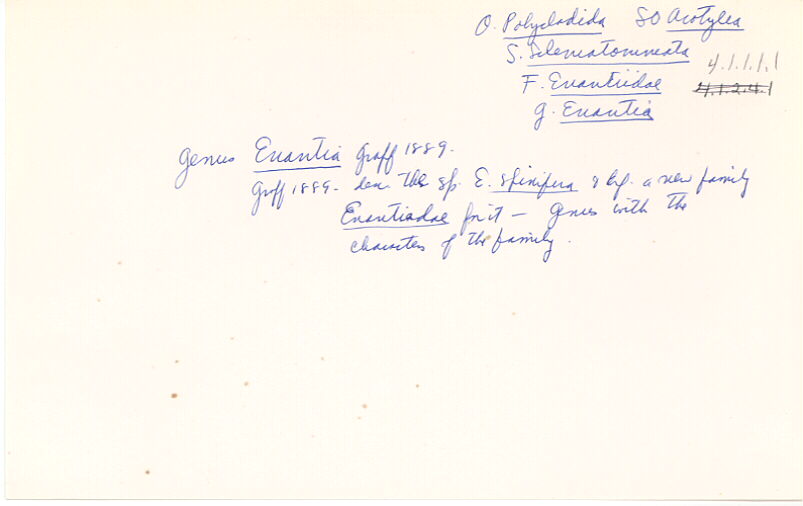 O. Polycladida SO Acotylea
S. Schematommeata
4.1.1.1.1
F. Enantiidae 4.1.2.4.1
g. Enantia
Genus Enantia Graff 1889.
Graff 1889 - des. the sp. E. spinifera & a new family
Enantiadae for it – Genus with the
characters of the family.